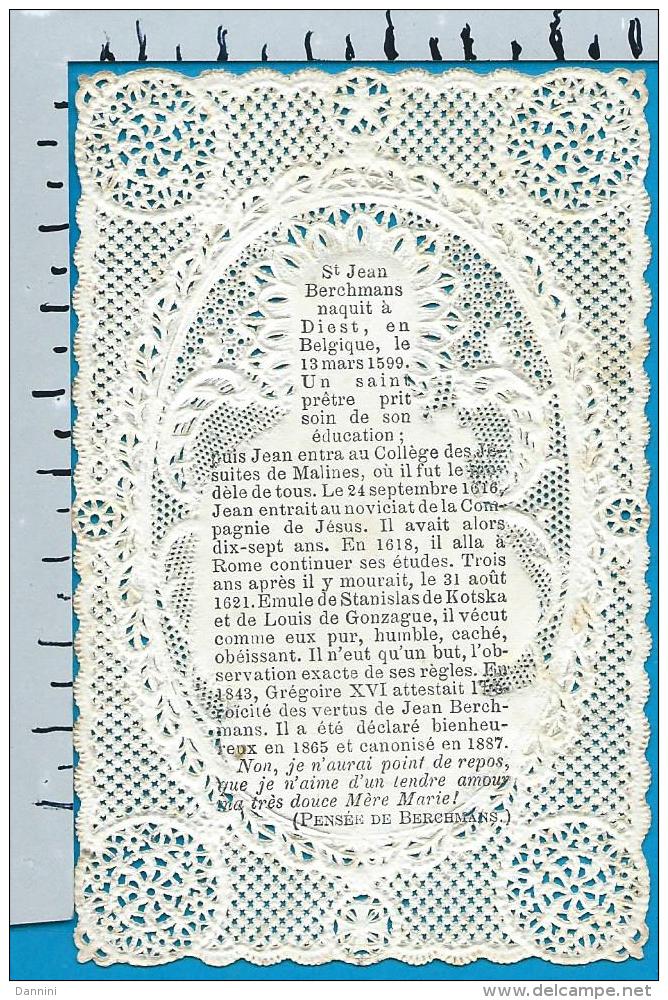 St Jean
Berchmans
naquit à
Diest, en
Belgique, le
13 mars 1599.
Un saint
prêtre prit
soin de son
éducation ;
puis Jean entra au Collège des Jé-
suites de Malines, où il fut le mo-
dèle de tous. Le 24 septembre 1616,
Jean entrait au noviciat de la Com-
pagnie de Jésus. Il avait alors
dix-sept ans. En 1618, il alla à
Rome continuer ses études. Trois
ans après il y mourait, le 31 août
1621. Emule de Stanislas de Kotska
et de Louis de Gonzague, il vécut
comme eux pur, humble, caché,
obéissant. Il n'eut qu'un but, l'ob-
servation exacte de ses règles. En
1843, Grégoire XVI attestait l'hé-
roïcité des vertus de Jean Berch-
mans. Il a été déclaré bienheu-
reux en 1865 et canonisé en 1887.
Non, je n'aurai point de repos,
que je n'aime d'un tendre amour
ma très douce Mère Marie!
(PENSÉE DE BERCHMANS.)
Dannini
delcampe.net